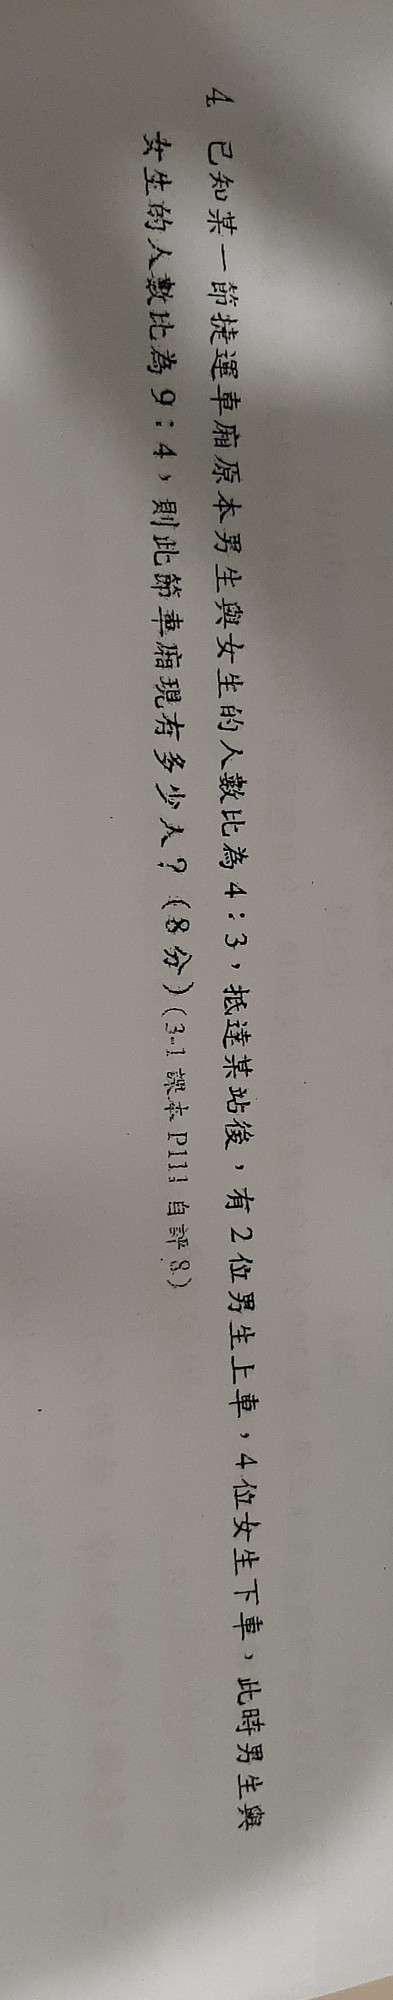 4. 已知某一節捷運車廂原本男生與女生的人數比為4:3,抵達某站後,有2位男生上車,4位女生下車,此時男生與
女生的人數比為9:4,則此節車廂現有多少人?(8分)(3-1課本P111自評8)